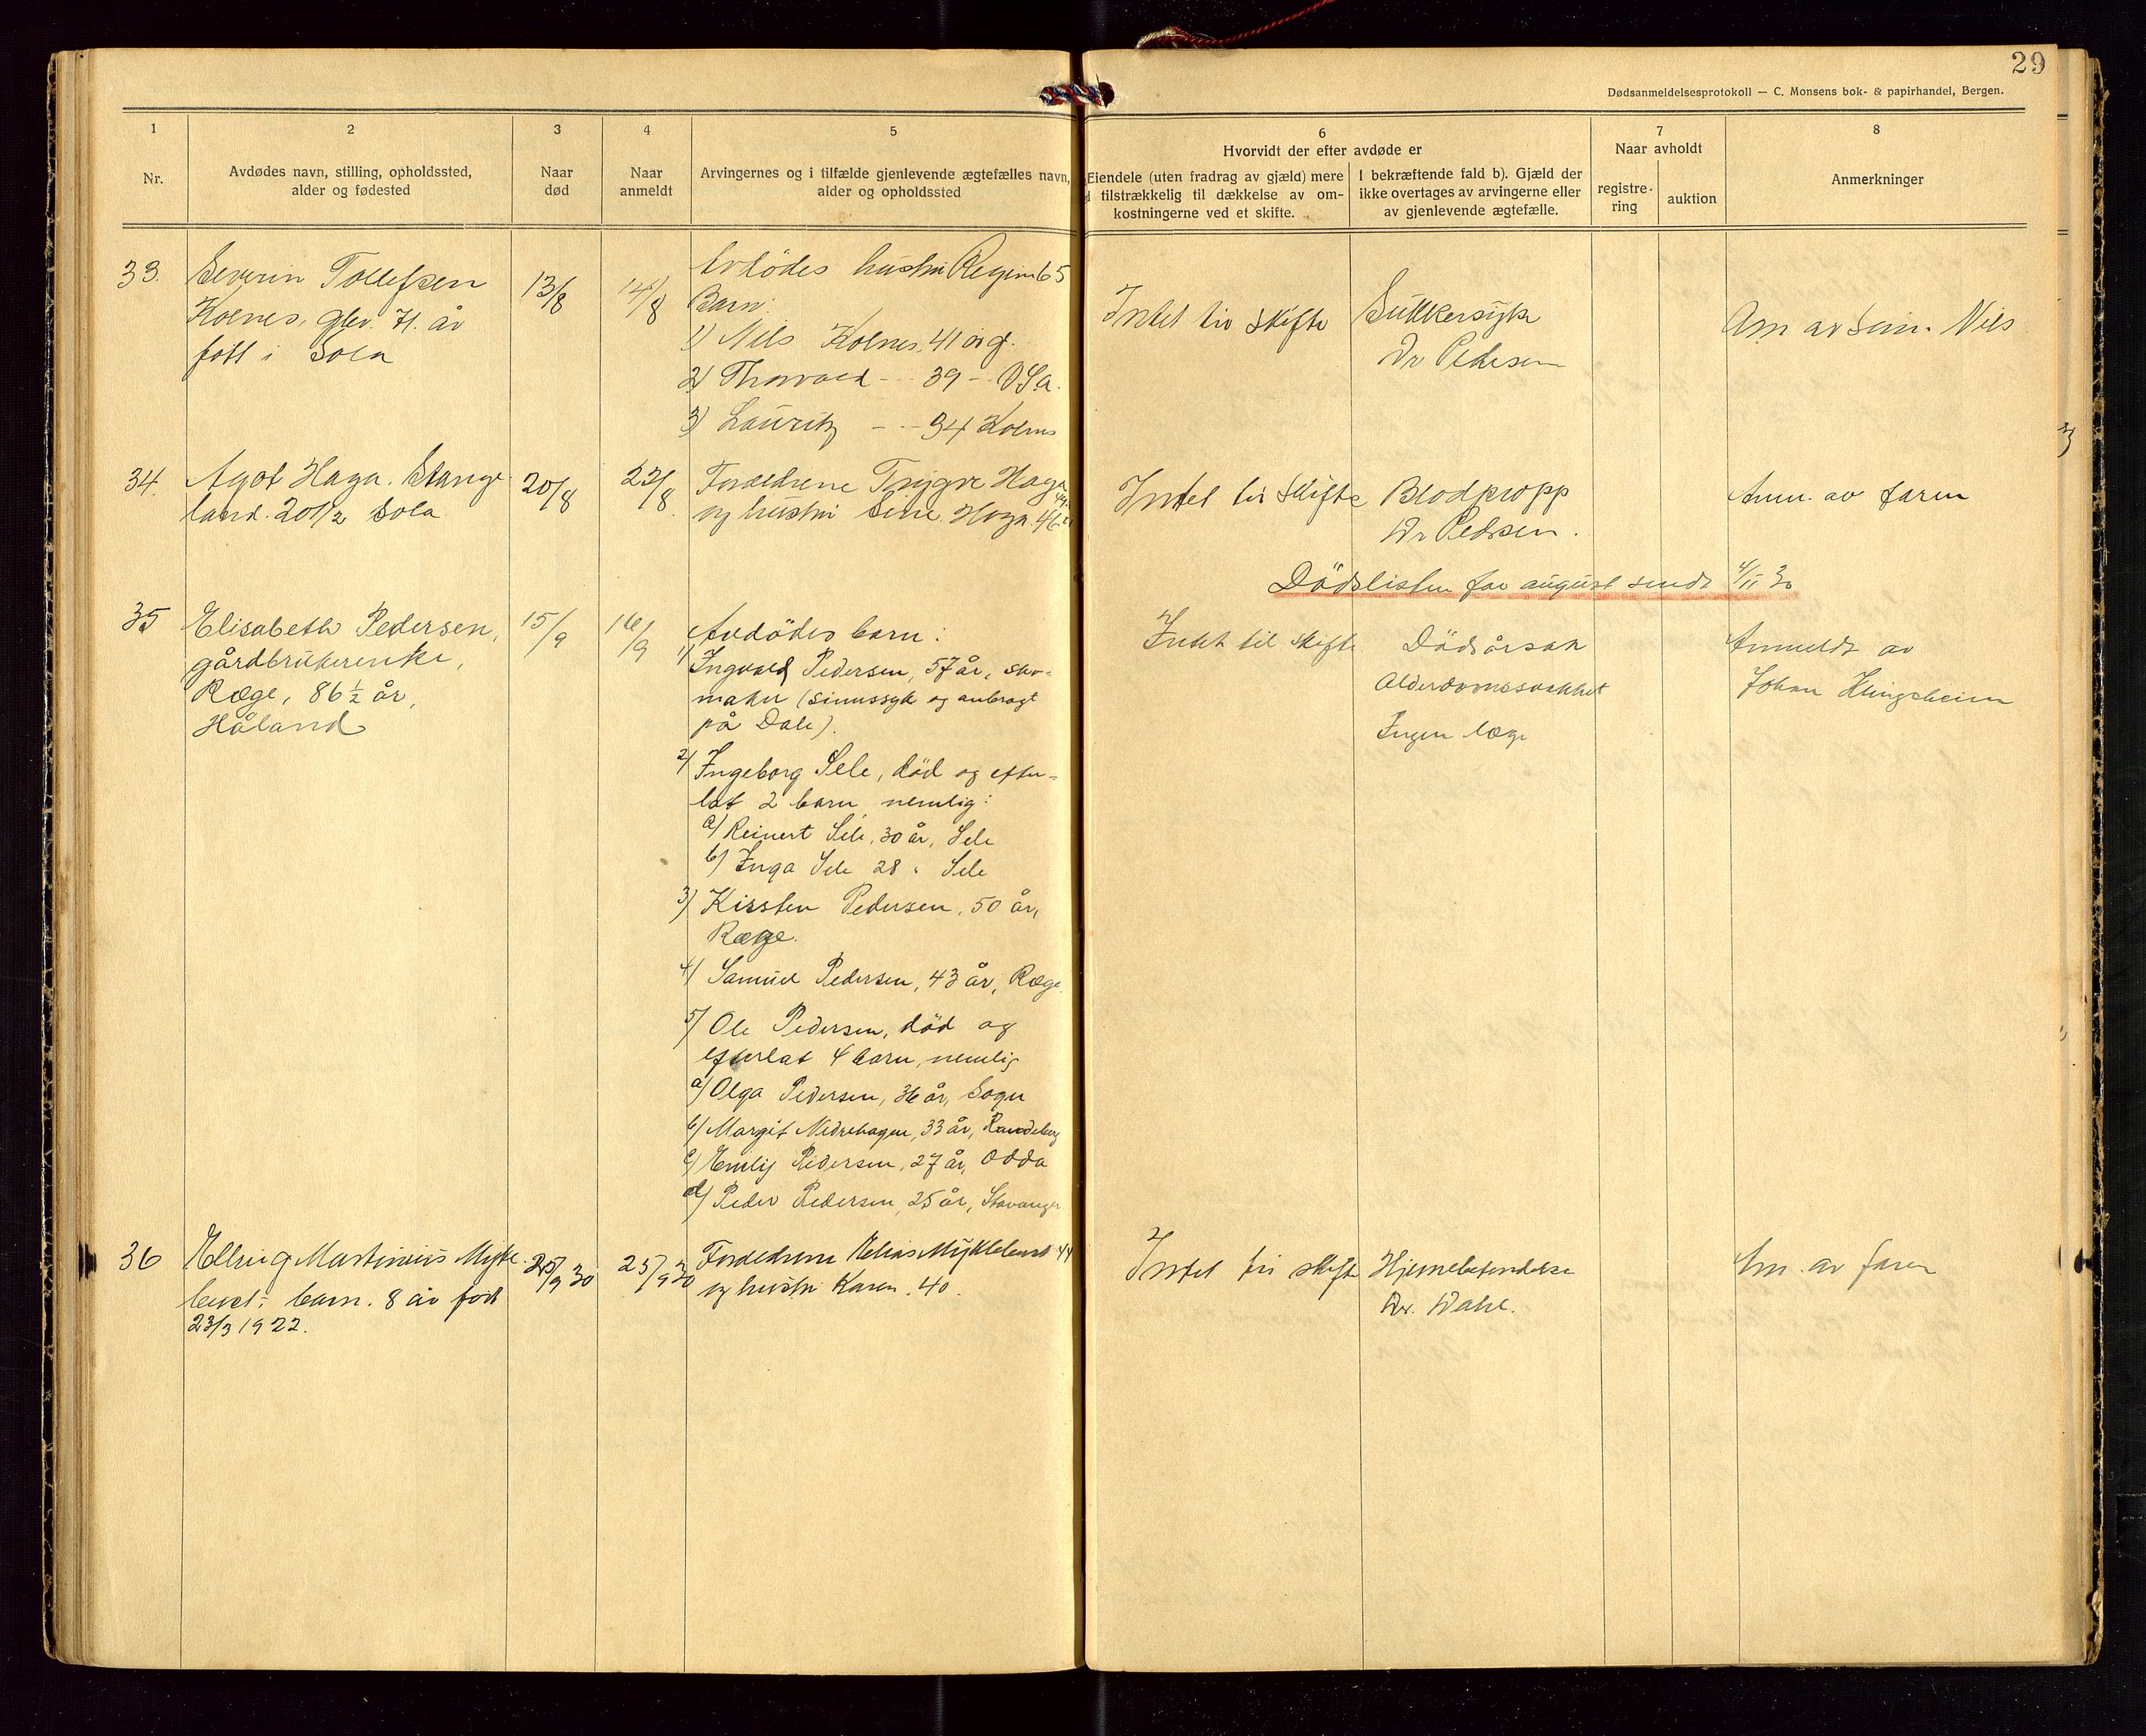 29
Dødsanmeldelsesprotokoll — C. Monsens bok- & papirhandel, Bergen.
1
2
3
4
5
6
7
8
Nr.
Avdødes navn, stilling, opholdssted,
alder og fødested
Naar
død
Naar
anmeldt
Arvingernes og i tilfælde gjenlevende ægtefælles navn,
alder og opholdssted
Hvorvidt der efter avdøde er
Eiendele (uten fradrag av gjæld) mere
tilstrækkelig til dækkelse av om-
kostningerne ved et skifte.
I bekræftende fald b). Gjæld der
ikke overtages av arvingerne eller
av gjenlevende ægtefælle.
Naar avholdt
registre-
ring
auktion
Anmerkninger
33.
Severin Tollefsen
Kolnes, gbr. 71. år
født i Sola
13/8
14/8
Avdödes hustru Regine 65
Barn:
1) Nils Kolnes, 41 år g.
2) Thorvald - - 39 - USA.
3) Lauritz - - 34 Kolnes
Intet til skifte
Sukkersyke
Dr Pedersen
Anm av sönn. Nils
34.
Agot Haga. Stange
land. 20 1/2 Sola
20/8
22/8
Foreldrene Trygve Haga
og hustru Sine Haga. 46
Intet til skifte
Blodpropp
Dr Pedersen.
Anm. av faren
Dödslisten for august sendt 4/11 30
35
Elisabeth Pedersen,
gårdbrukerenke,
Ræge, 86 1/2 år,
Håland
15/9
16/9
Avdödes barn:
1) Ingvald Pedersen, 57 år, sko-
maker (sinnssyk og anbragt
på Dale).
2) Ingeborg Sele, död og efter-
lat 2 barn, nemlig:
a) Reinert Sele, 30 år, Sele
b) Inga Sele 28 " Sele
3) Kirsten Pedersen, 50 år,
Ræge.
4) Samuel Pedersen, 43 år, Ræge
5) Ole Pedersen, död og
efterlat 4 barn, nemlig
a) Olga Pedersen, 36 år, Sogn
b) Margit Nedrehagen, 33 år, Randeberg
c) Emily Pedersen, 27 år, Odda
d) Peder Pedersen, 25 år, Stavanger
Intet til skifte
Dödsårsak
Alderdomssvakhet
Ingen læge
Anmeldt av
Johan Klingsheim
36
Elling Martinius Mykle
bust: barn. 8 år født
23/3 1922.
25/9 30
25/9 30
Foreldrene Elias Myklebust 44
og hustru Karen. 40.
Intet til skifte
Hjernebetendelse
Dr. Dahl.
Anm. av faren